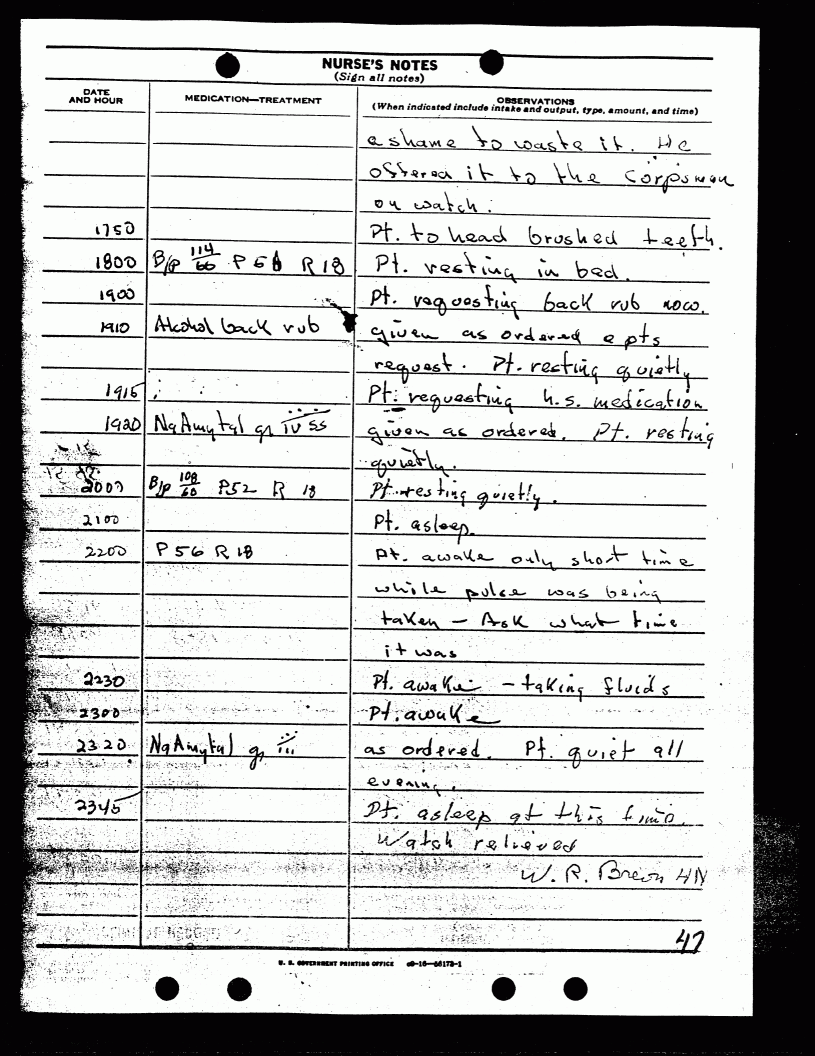 NURSE'S NOTES
(Sign all notes)
DATE AND HOUR MEDICATION—TREATMENT OBSERVATIONS
(When indicated include intake and output, type, amount, and time)
a shame to waste it. He
offered it to the Corpsman
on watch.
1750 Pt. to head brushed teeth.
1800 B/P 114/66 P 56 R 18 Pt. resting in bed.
1900 Pt. requesting back rub now.
1910 Alcohol back rub given as ordered @ pts
request. Pt. resting quietly
1915 Pt. requesting h.s. medication
1920 NaAmytal gr iv ss given as ordered. Pt. resting
quietly.
2000 B/P 108/60 P52 R 18 Pt resting quietly.
2100 Pt. asleep.
2200 P 56 R 18 Pt. awake only short time
while pulse was being
taken – Ask what time
it was
2230 Pt. awake – taking fluids
2300 Pt. awake
2320 NaAmytal gr iii as ordered. Pt. quiet all
evening.
2345 Pt. asleep at this time.
Watch relieved
W. R. HN
47
U. S. GOVERNMENT PRINTING OFFICE